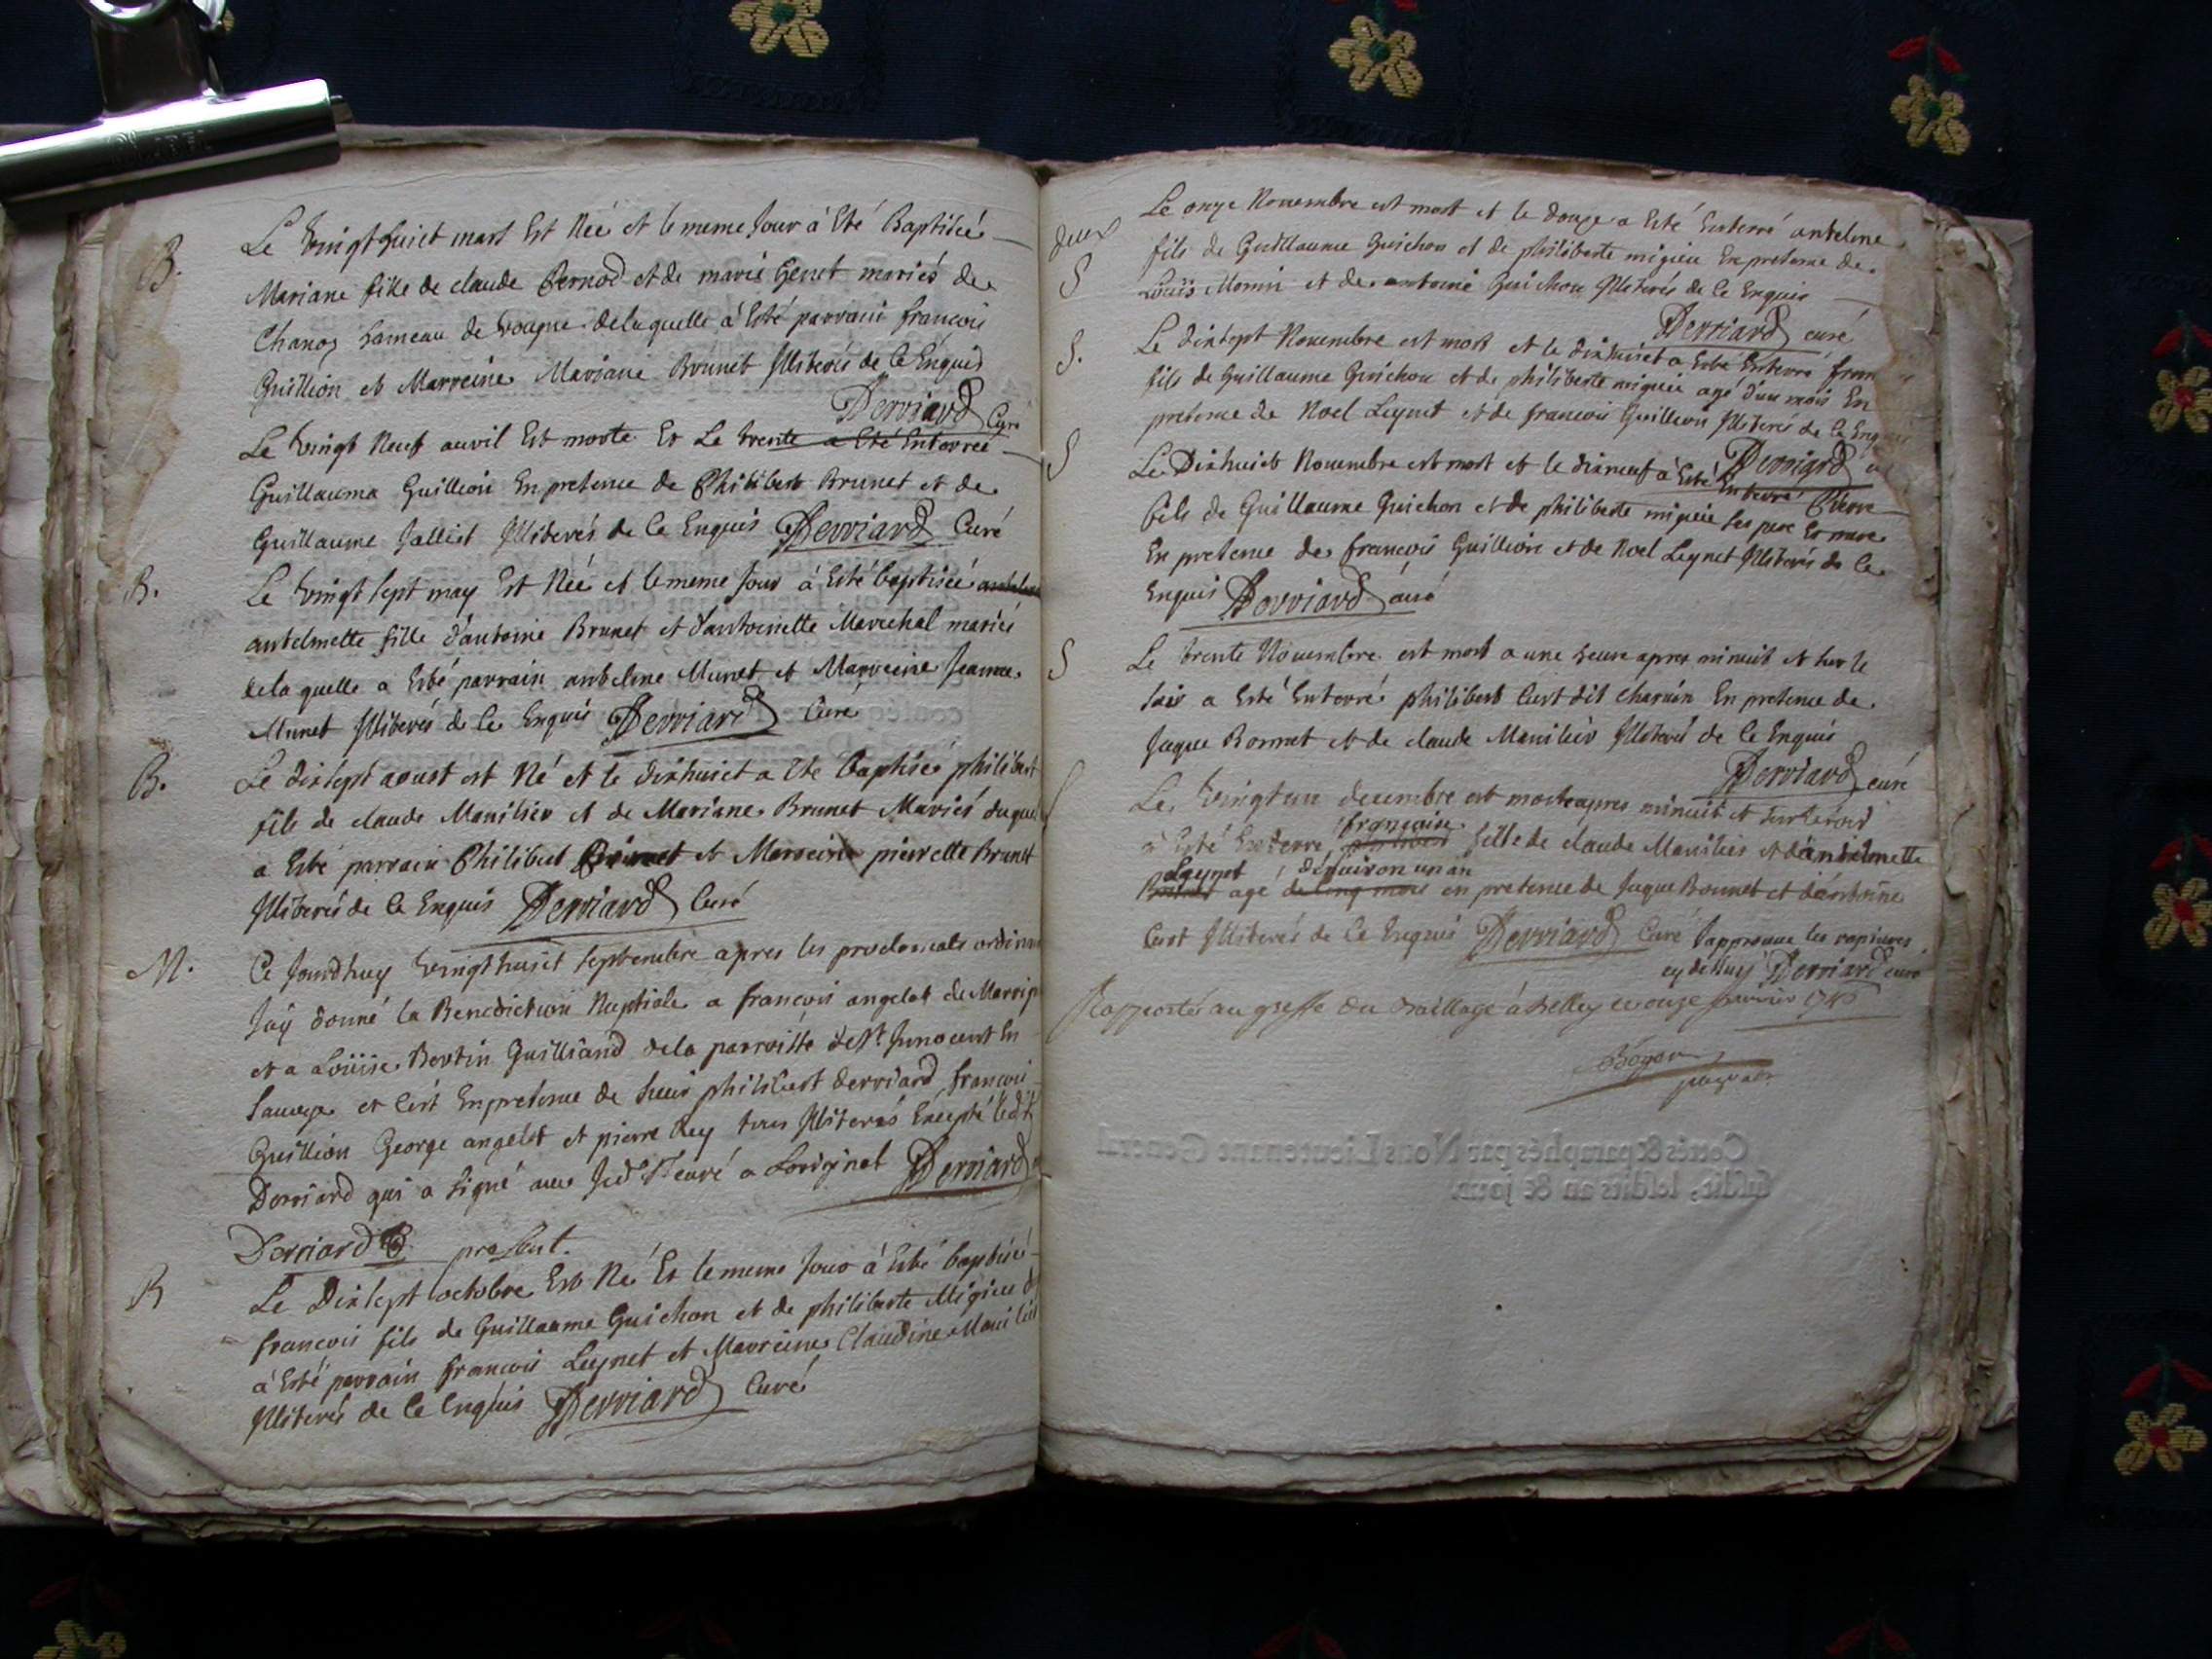 B.
Le vingt huict mars Est Née et le meme Jour à Eté Baptisée
Mariane fille de claude Pernod et de marie Genet mariés de
Chanoz hameau de vougne delaquelle à Esté parrain françois
Guillion et Marreine Mariane Brunet Illiterés de Ce Enquis
Derriard Curé
Le vingt Neuf avril Est morte Et Le trente a Eté Enterrée
Guillauma Guillion En pretence de Philibert Brunet et de
Guillaume Jalliet Illiterés de Ce Enquis Derriard Curé
B.
Le vingt sept may Est Née et le meme Jour à Esté baptisée
antelmette fille d'antoine Brunet et d'antoinette Marechal mariés
dela quelle a Esté parrain antelme Munet et Marreine Jeanne
Munet Illiterés de Ce Enquis Derriard Curé
B.
Le dixsept aoust est Né et le dixhuict a Eté baptisé philibert
fils de claude Manilier et de Mariane Brunet Mariés duquel
a Esté parrain Philibert Brunet et Marreine pierrette Brunet
Illiterés de Ce Enquis Derriard Curé
M.
Ce Jourdhuy vingthuict septembre apres les proclamats
Jay donné la Benediction Nuptiale a francois angelot de
et a Loüise Bertin Guilliand dela parroisse de St Innocent En
Sauoye et C'est En pretence de philibert derriard francois
Guillion George angelot et pierre Rey tous Illiterés Excepté ledit
Derriard qui a signé avec curé a Loriginal Derriard
Derriard present.
B
Le Dixsept octobre Est Né Et le meme Jour à Esté baptisé
francois fils de Guillaume Guichon et de philiberte Migieu
à Esté parrain francois Leynet et Marreine Claudine Manilier
Illiterés de Ce Enquis Derriard Curé
Le onze Novembre est mort et le douze a Esté Enterré antelme
deux
S
fils de Guillaume Guichon et de philiberte migieu En pretence de
Loüis Monin et de antoine Guichon Illiterés de Ce Enquis
Derriard curé
S.
Le dixsept Novembre est mort et le dixhuict a Esté Enterré fran
fils de Guillaume Guichon et de philiberte migieu agé d'un mois En
pretence de Noel Leynet et de francois Guillion Illiterés de Ce Enq
Derriard
S
Le Dixhuict Novembre est mort et le dixneuf à Esté Enterré Pierre
fils de Guillaume Guichon et de philiberte migieu ses pere Et mere
En pretence de francois Guillion et de Noel Leynet Illiterés de Ce
Enquis Derriard curé
S
Le trente Novembre est mort a une heure apres minuit et sur le
soir a Esté Enterré philibert Curt dit charvin En pretence de
Jaque Bonnet et de claude Manilier Illiterés de Ce Enquis
Derriard curé
S
Le vingtun decembre est morte apres minuit et sur le soir
à Esté Enterré francoise fille de claude Manilier et d'antelmette
Leynet d'environ un an
agé de cinq mois en pretence de Jaque Bonnet et d'antoine
Curt Illiterés de Ce Enquis Derriard Curé J'approuve les ratures
cy dessus Derriard curé
Rapporté au greffe du Bailliage à Belley le onze janvier
Cottés & paraphés par Nous Lieutenant General
susdit, lesdits an & jour.